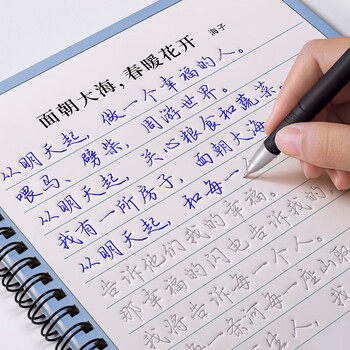 面朝大海，春暖花开
海子
从明天起，做一个幸福的人。
喂马、劈柴，周游世界。
从明天起，关心粮食和蔬菜，
我有一所房子，面朝大海
从明天起，和每一
告诉他们我的幸福。
那幸福的闪电告诉我的
我将告诉每一个人。
一条河每一座山取
生人，我